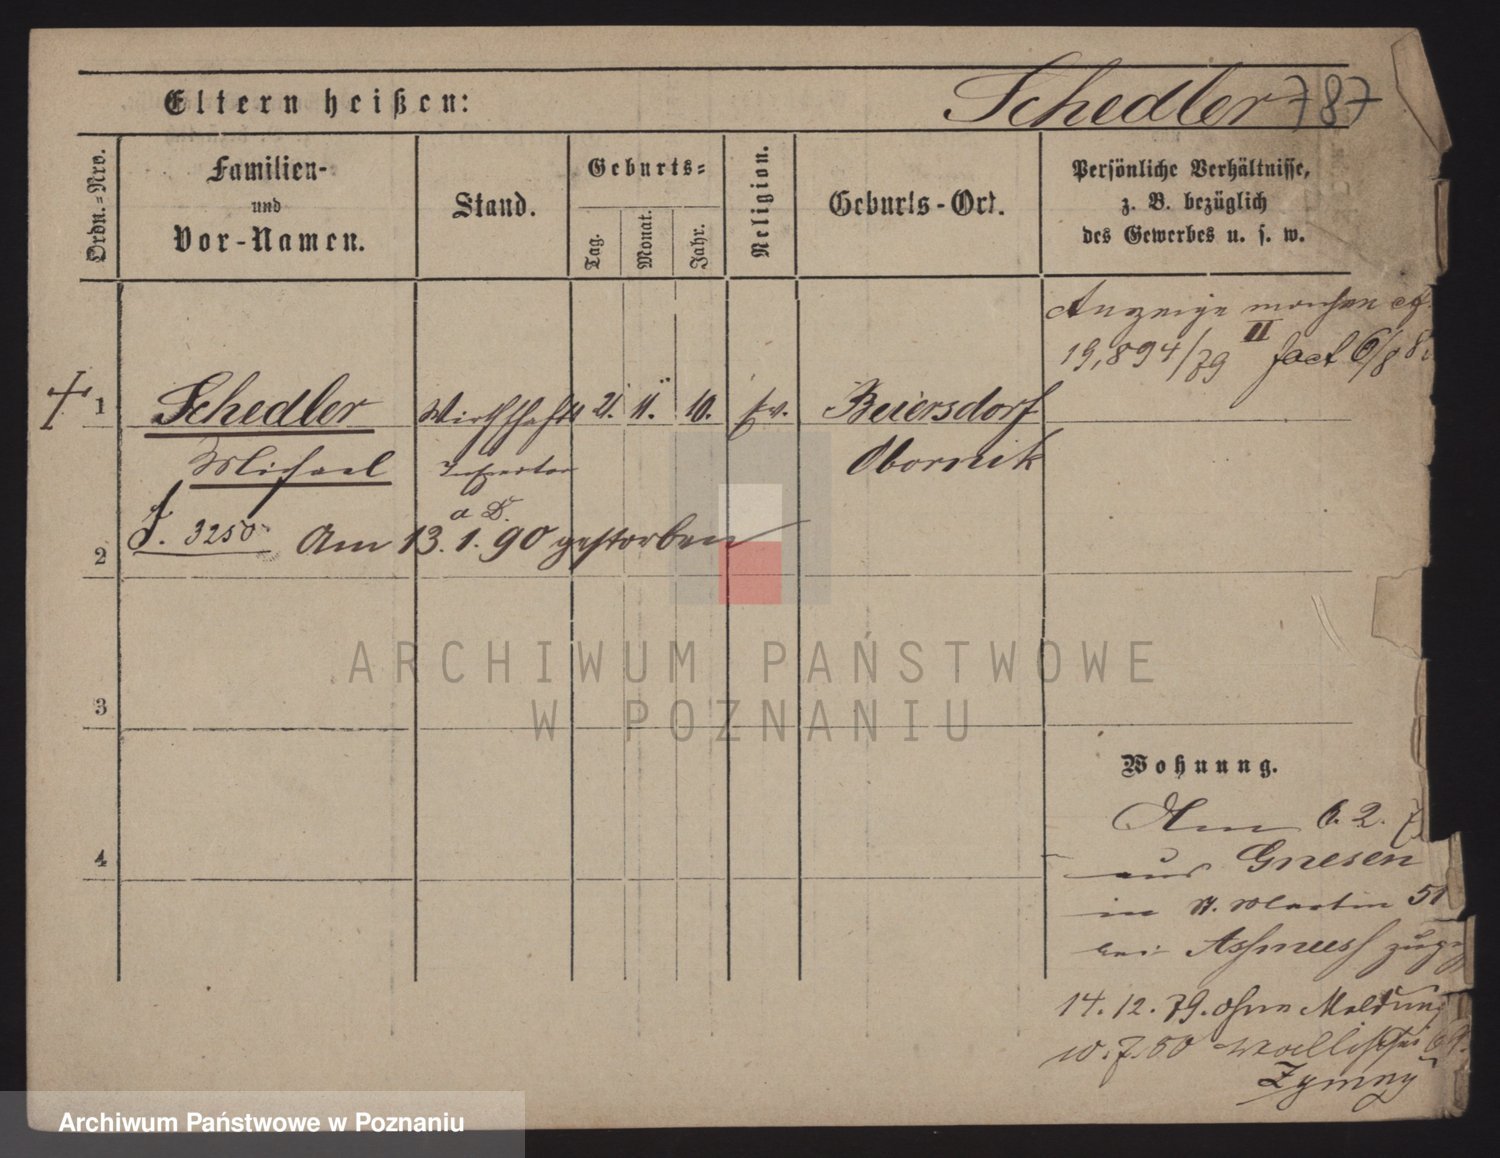 Eltern heißen:
Schedler 787
Ordn.=Nro.
Familien-
und
Vor-Namen.
Stand.
Geburts=
Tag.
Monat.
Jahr.
Religion.
Geburts-Ort.
Persönliche Verhältnisse,
z. B. bezüglich
des Gewerbes u. s. w.
Anzeige machen cf.
19,894/79 II fact 6/8
1 Schedler Wirthschafts 21. 11. 10. ev. Beiersdorf
Michael Inspector Obornik
a D.
J. 3250 Am 13.1.90 gestorben
2
3
4
Wohnung.
Am 6. 2. 7
aus Gnesen
in St. Martin 51
bei
14.12.79. ohne Meldung
10.7.80 Wallischei
Zymny
ARCHIWUM PAŃSTWOWE
W POZNANIU
Archiwum Państwowe w Poznaniu